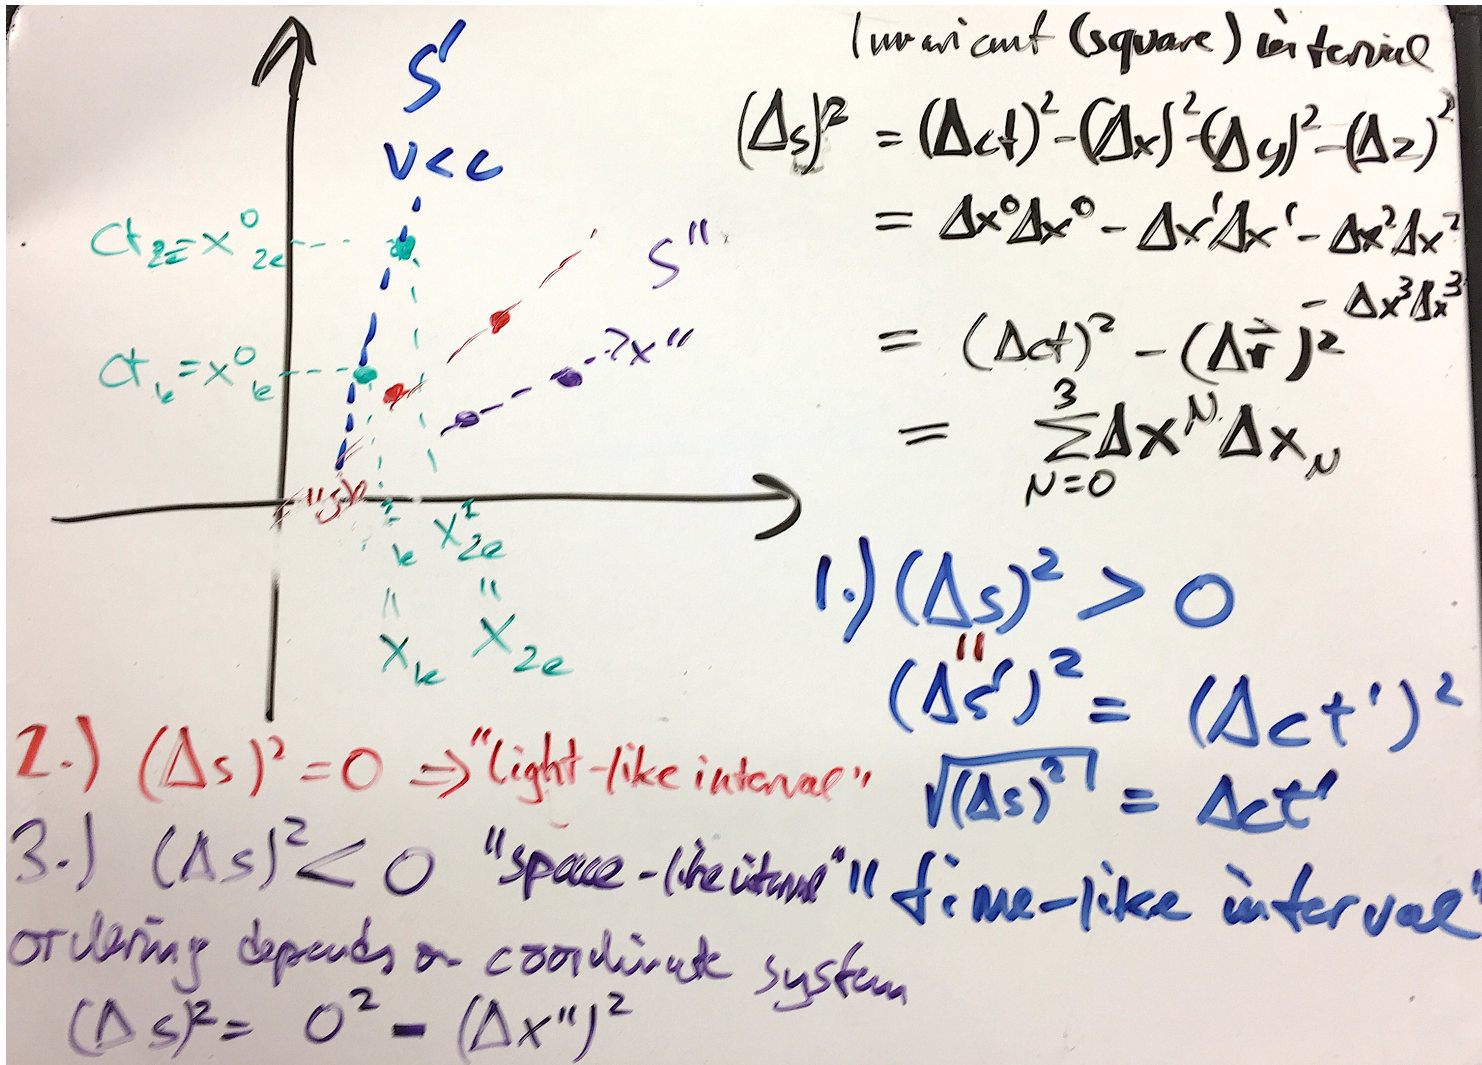 Invariant (square) interval
(Δs)² = (Δct)² - (Δx)² - (Δy)² - (Δz)²
= Δx⁰Δx⁰ - Δx¹Δx¹ - Δx²Δx²
- Δx³Δx³
= (Δct)² - (Δr⃗)²
= Σ Δx^μ Δx_μ
3
μ=0
S'
v<c
S"
x"
ct₂ₑ = x⁰₂ₑ
ct₁ₑ = x⁰₁ₑ
x¹₂ₑ
"
"
x₁ₑ
x₂ₑ
1.) (Δs)² > 0
"
(Δs')² = (Δct')²
√(Δs)² = Δct'
"time-like interval"
2.) (Δs)² = 0 ⇒ "light-like interval"
3.) (Δs)² < 0 "space-like interval"
ordering depends on coordinate system
(Δs)² = 0² - (Δx")²